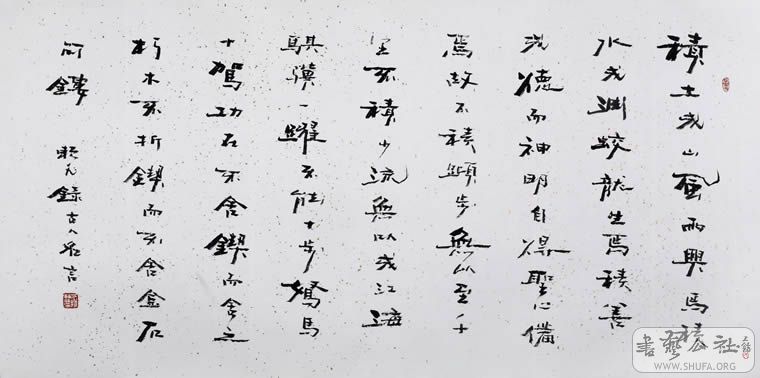 積土成山風雨興焉積
水成淵蛟龍生焉積善
成德而神明自得聖心備
焉故不積蹞步無以至千
里不積少流無以成江海
騏驥一躍不能十步駑馬
十駕功在不舍鍥而舍之
朽木不折鍥而不舍金石
可鏤 錄古人名言
書藝公社
WWW.SHUFA.ORG